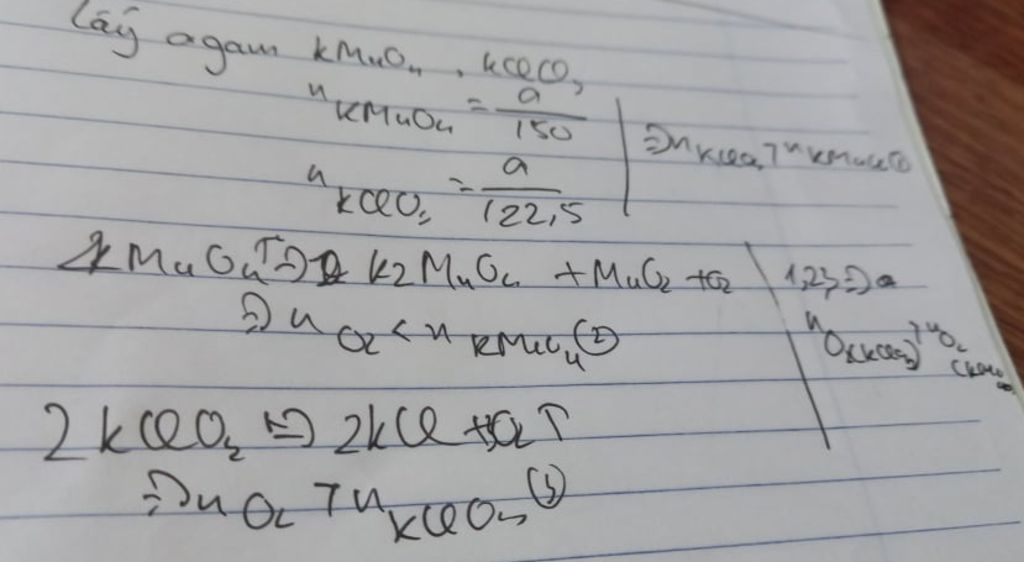 Lấy a gam KMnO4, KClO3
nKMnO4 = a/150
nKClO3 = a/122,5
=> nKClO3 > nKMnO4 (1)
2KMnO4 T=> K2MnO4 + MnO2 + O2
=> nO2 < nKMnO4 (2)
1,2,3 =>
nO2(KClO3) > nO2
2KClO3 => 2KCl + 3O2 ↑
=> nO2 > nKClO3 (3)